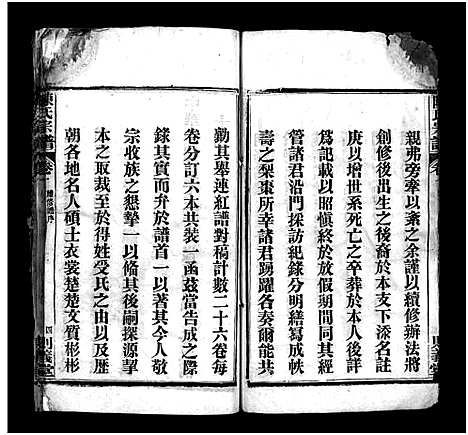 親弗旁牽以紊之余謹以續修辦法將
創修後出生之後裔於本支下添名註
庚以增世系死亡之卒葬於本人後詳
爲記載以昭愼終於前與執筆任其事
管諸君沿門採訪紀錄分明繕寫成帙
壽之梨棗所幸諸君踴躍各奏爾能共
勷其舉連紅譜對稿計數二十六卷每
卷分訂六本共裝一函茲當告成之際
錄其實而弁於譜首一以著其今人敬
宗收族之懇摯一以脩其後嗣探源挐
本之取裁至於得姓受氏之由以及歷
朝各地名人碩士衣裳楚楚文質彬彬
陳氏宗譜
卷一
四
則義堂